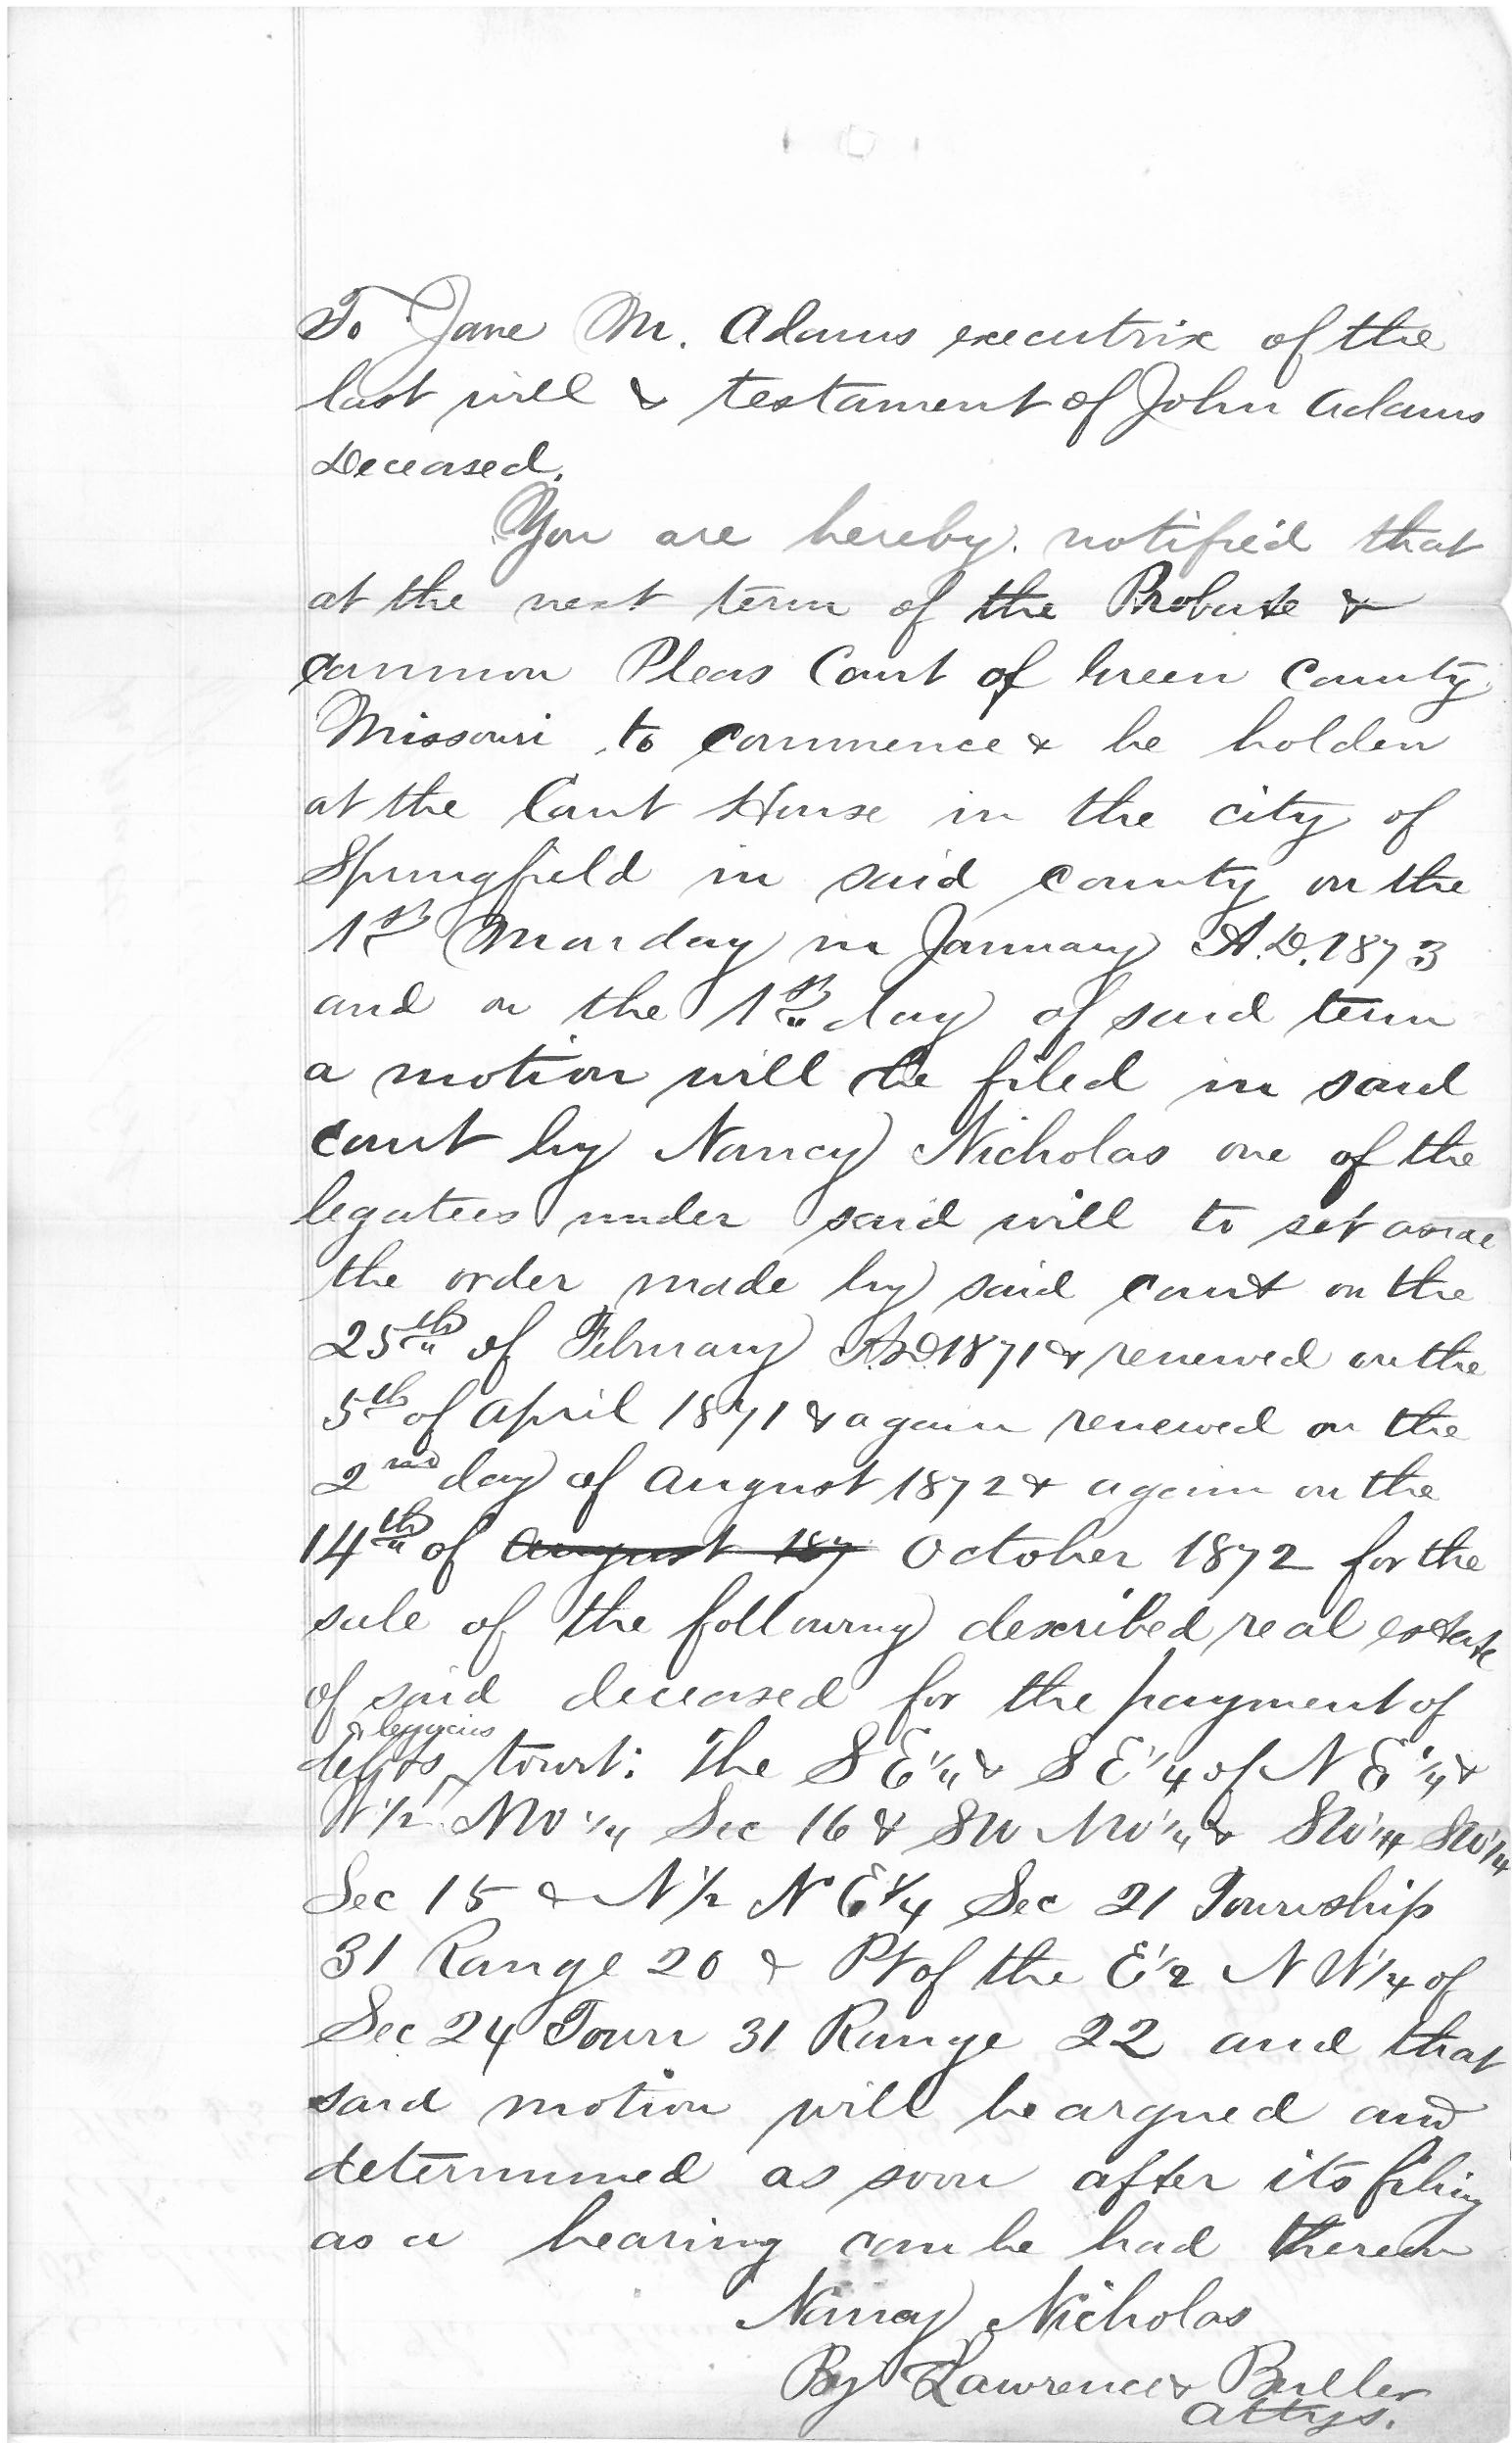 To Jane M. Adams executrix of the
last will & testament of John Adams
Deceased.
You are hereby notified that
at the next term of the Probate &
common Pleas Court of Green County
Missouri to commence & be holden
at the Court House in the city of
Springfield in said county on the
1st Monday in January A.D. 1873
and on the 1st day of said term
a motion will be filed in said
court by Nancy Nicholas one of the
legatees under said will to set aside
the order made by said court on the
25th of February A.D. 1871 & renewed on the
5th of April 1871 & again renewed on the
2nd day of August 1872 & again on the
14th of August 187 October 1872 for the
sale of the following described real estate
of said deceased for the payment of
& legacies
debts towit: The S E 1/4 & S E 1/4 of N E 1/4 &
W 1/2 NW 1/4 Sec 16 & SW NW 1/4 & SW 1/4 SW 1/4
Sec 15 & N 1/2 N E 1/4 Sec 21 Township
31 Range 20 & Pt of the E 1/2 N W 1/4 of
Sec 24 Town 31 Range 22 and that
said motion will be argued and
determined as soon after its filing
as a hearing can be had therein
Nancy Nicholas
By Lawrence &
attys.